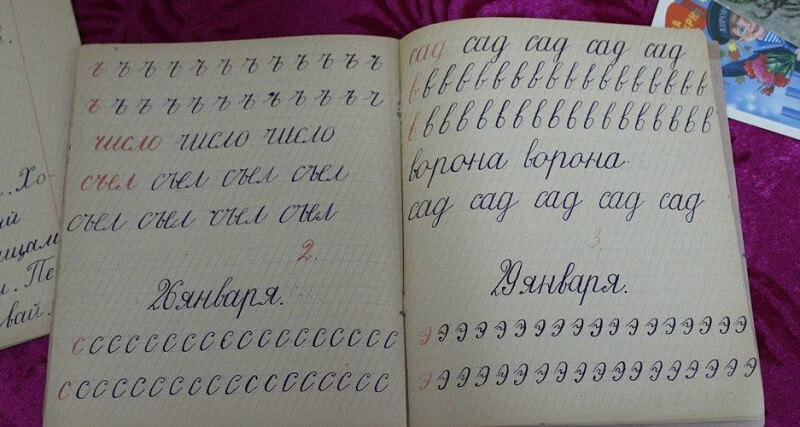 . Хо-
й
ицам
. Пе
вай.
ъ ъ ъ ъ ъ ъ ъ ъ ъ ъ ъ ъ
ъ ъ ъ ъ ъ ъ ъ ъ ъ ъ ъ ъ
число число число
съел съел съел съел
съел съел съел съел
2.
26 января.
с с с с с с с с с с с с с с с с с с
с с с с с с с с с с с с с с с с с с
сад сад сад сад сад
в в в в в в в в в в в в в в в в в в в
в в в в в в в в в в в в в в в в в в в
ворона ворона
сад сад сад сад сад
3.
29 января.
э э э э э э э э э э э э э э э э э э
э э э э э э э э э э э э э э э э э э